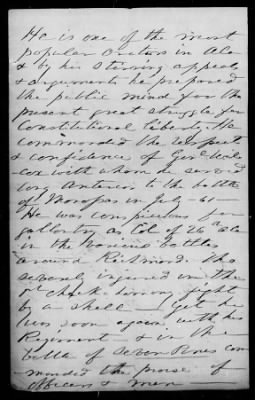 He is one of the most
popular orators in Ala
& by his stirring appeals
& arguments he prepared
the public mind for the
present great struggle for
Constitutional liberty. He
commanded the respect
& confidence of Genl Wil
cox with whom he served
long anterior to the battle
of Manassas in July -61-
He was conspicuous for
gallantry as Col of 26th Ala
in the various battles
around Richmond. Was
severely injured in the
rt cheek during fight
by a shell - yet he
was soon again with his
Regiment & in the
battle of Seven Pines com
manded the praise of
Officers & men